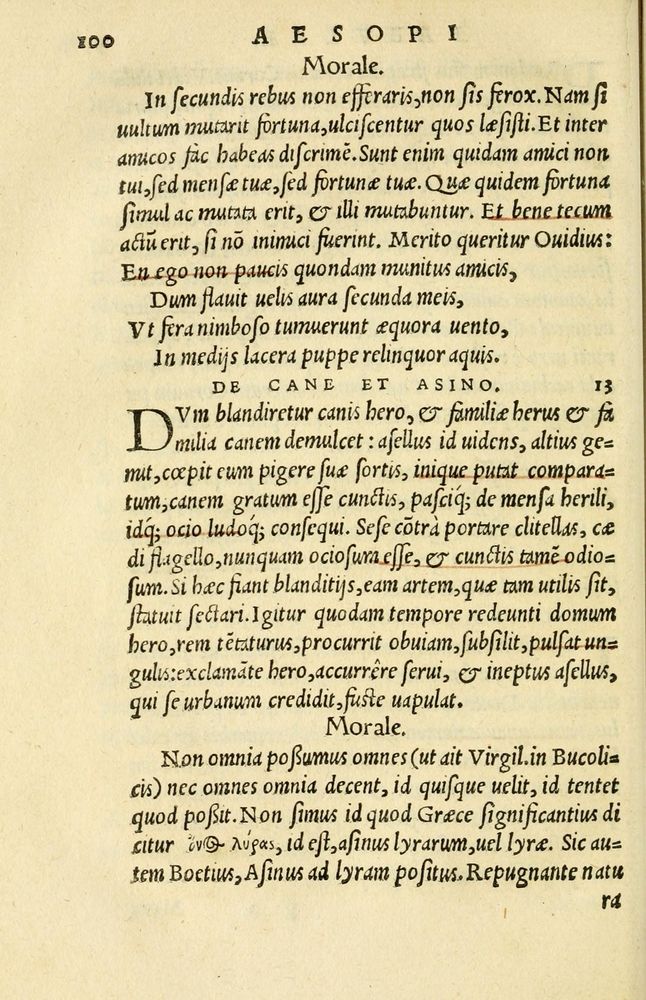 100 AESOPI
Morale.
In ſecundis rebus non efferaris, non ſis ferox. Nam ſi
uultum mutarit fortuna, ulciſcentur quos læſiſti. Et inter
amicos fac habeas diſcrimē. Sunt enim quidam amici non
tui, ſed menſæ tuæ, ſed fortunæ tuæ. Quæ quidem fortuna
ſimul ac mutata erit, & illi mutabuntur. Et bene tecum
actū erit, ſi nō inimici fuerint. Merito queritur Ouidius:
En ego non paucis quondam munitus amicis,
Dum flauit uelis aura ſecunda meis,
Vt fera nimboſo tumuerunt æquora uento,
In medijs lacera puppe relinquor aquis.
DE CANE ET ASINO. 13
DVm blandiretur canis hero, & familiæ herus & fa
milia canem demulcet: aſellus id uidens, altius ge-
mit, cœpit eum pigere ſuæ ſortis, inique putat compara-
tum, canem gratum eſſe cunctis, paſciq́; de menſa herili,
idq́; ocio ludoq́; conſequi. Seſe cōtrà portare clitellas, cæ
di flagello, nunquam ocioſum eſſe, & cunctis tamē odio-
ſum. Si hæc fiant blanditijs, eam artem, quæ tam utilis ſit,
ſtatuit ſectari. Igitur quodam tempore redeunti domum
hero, rem tētaturus, procurrit obuiam, ſubſilit, pulſat un-
gulis: exclamāte hero, accurrêre ſerui, & ineptus aſellus,
qui ſe urbanum credidit, fuſte uapulat.
Morale.
Non omnia poßumus omnes (ut ait Virgil. in Bucoli-
cis) nec omnes omnia decent, id quiſque uelit, id tentet
quod poßit. Non ſimus id quod Græce ſignificantius di
citur λύρας, id eſt, aſinus lyrarum, uel lyræ. Sic au-
tem Boetius, Aſinus ad lyram poſitus. Repugnante natu
ra